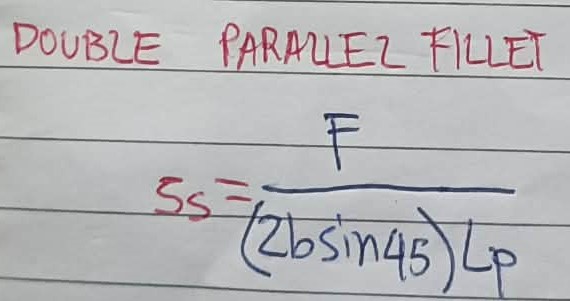 DOUBLE PARALLEL FILLET
Ss = F
(2bsin45)Lp